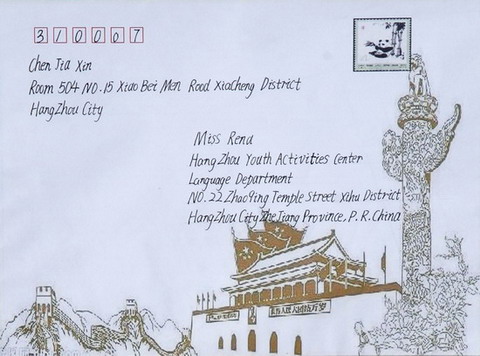 310007
Chen Jia Xin
Room 504 NO.15 Xiao Bei Men Rood XiaCheng District
HangZhou City
Miss Rena
HangZhou Youth Activities Center
Language Department
NO.22 ZhaoQing Temple Street Xihu District
HangZhou City ZheJiang Province, P.R.China